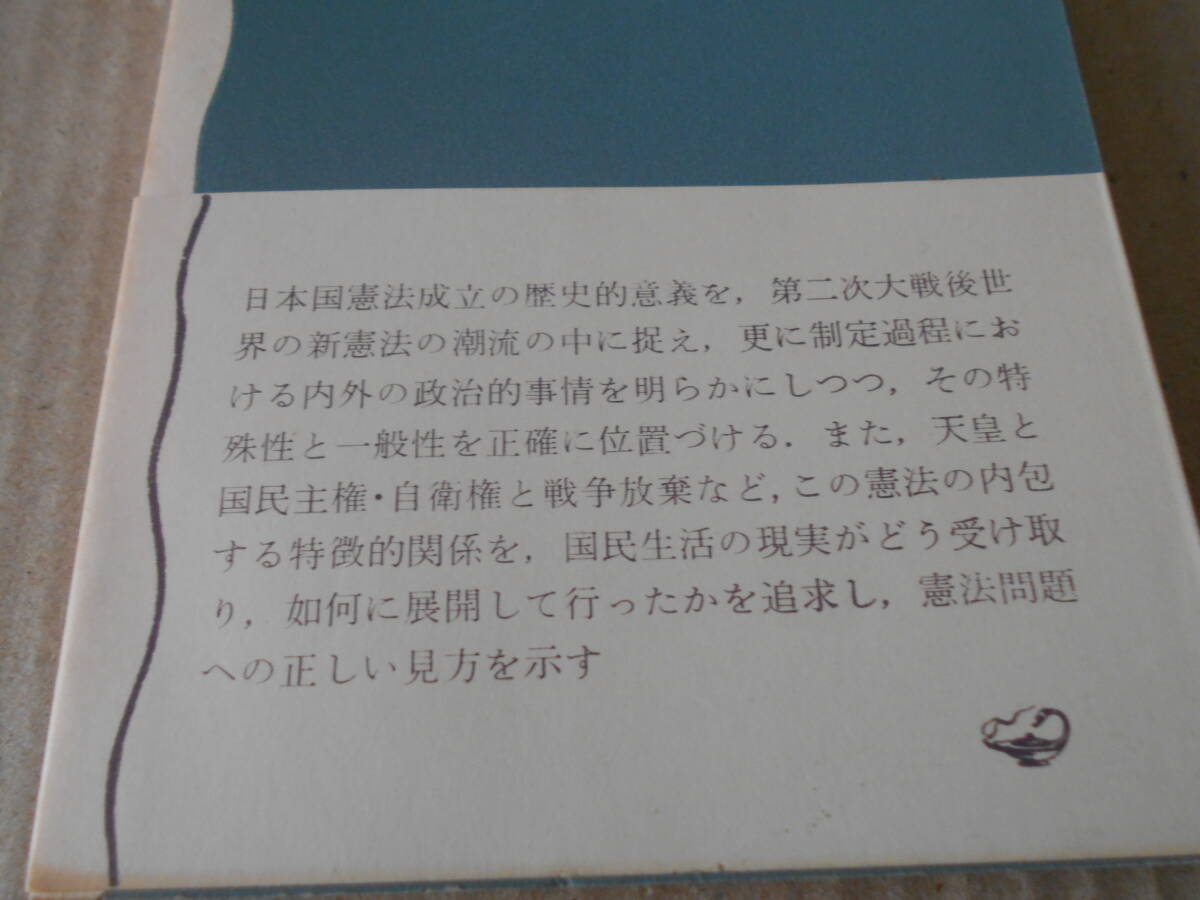 日本国憲法成立の歴史的意義を，第二次大戦後世
界の新憲法の潮流の中に捉え，更に制定過程にお
ける内外の政治的事情を明らかにしつつ，その特
殊性と一般性を正確に位置づける．また，天皇と
国民主権・自衛権と戦争放棄など，この憲法の内包
する特徴的関係を，国民生活の現実がどう受け取
り，如何に展開して行ったかを追求し，憲法問題
への正しい見方を示す